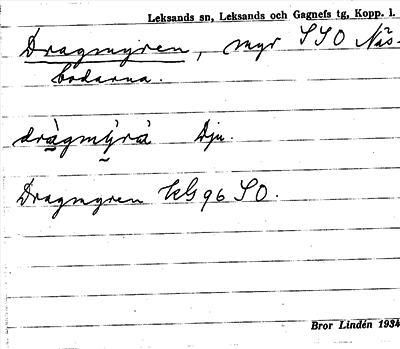 Leksands sn, Leksands och Gagnefs tg, Kopp. l.
Dragmyren, myr SSO Näs-
bodarna.
dràgmỳrà Dju.
Dragmyren kG 96 SO.
Bror Lindén 1934